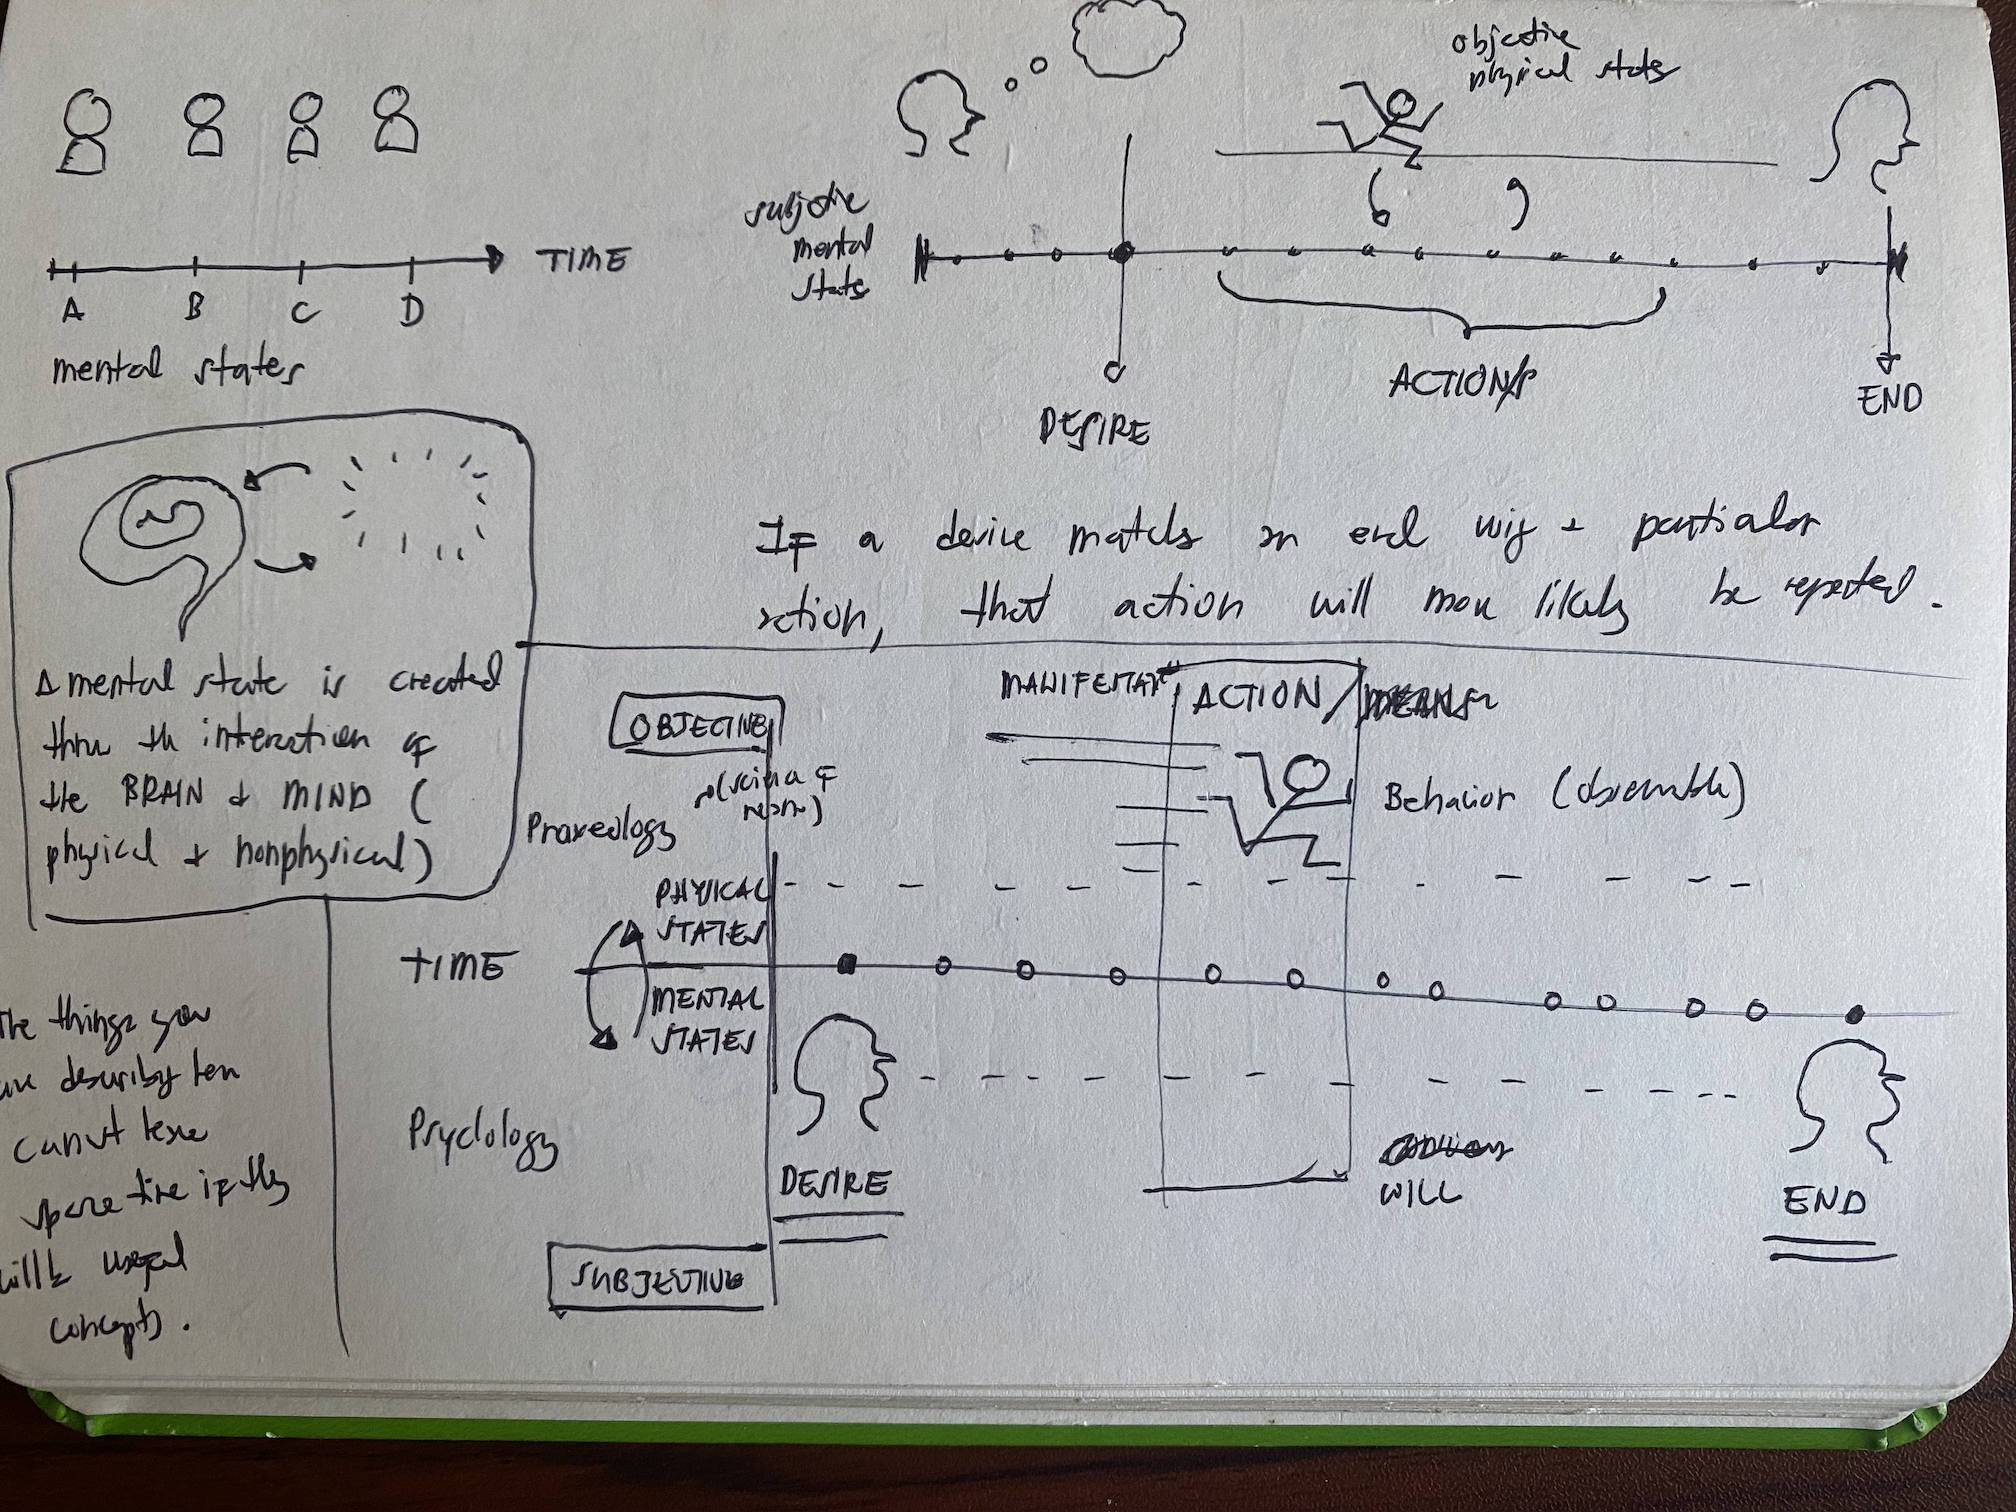 TIME
A B C D
mental states
objective
physical states
subjective
mental
states
DESIRE
ACTION/S
END
If a desire matches an end using a particular
action, that action will more likely be repeated.
A mental state is created
thru the interaction of
the BRAIN & MIND (
physical & nonphysical)
The things you
are describing here
cannot have
space time if they
will be useful
concepts.
OBJECTIVE
MANIFESTATION
ACTION / MEANS
Praxeology
Behavior (observable)
PHYSICAL
STATES
TIME
MENTAL
STATES
Psychology
DESIRE
WILL
END
SUBJECTIVE